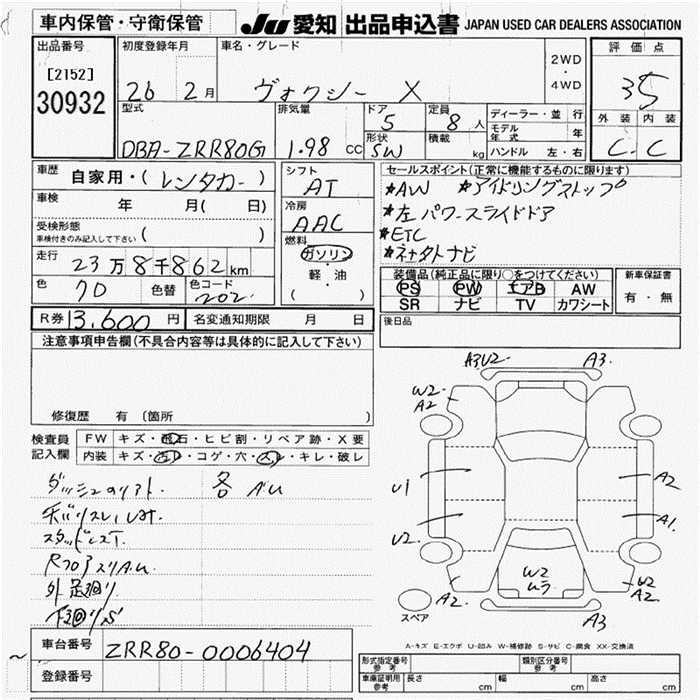 車内保管・守衛保管 JU 愛知 出品申込書 JAPAN USED CAR DEALERS ASSOCIATION
出品番号 初度登録年月 車名・グレード 評価点
[2152] 26 2月 ヴォクシー X 2WD・4WD 3.5
30932 型式 排気量 ドア 定員 ディーラー・並行 外装 内装
DBA-ZRR80G 1.98 CC 5 8人 モデル年式 年
形状 5W 積載 kg ハンドル 左・右 C - C
車歴 自家用・(レンタカー) シフト AT セールスポイント(正常に機能するものに限ります)
車検 年 月( 日) 冷房 AAC *AW *アイドリングストップ
受検形態 *左パワースライドドア
車検付きのみ記入して下さい ( ) 燃料 *ETC
走行 23万8千862km ガソリン
色 70 色替 色コード 202 軽・油 装備品(純正品に限り○をつけてください) 新車保証書
( ) PS PW エアB AW 有・無
SR ナビ TV カワシート
R券 13,600円 名変通知期限 月 日 後日品
注意事項申告欄(不具合内容等は具体的に記入して下さい)
修復歴 有 (箇所 )
検査員 FW キズ・飛石・ヒビ割・リペア跡・X要
記入欄 内装 キズ・ ・コゲ・穴・ ・キレ・破レ
各 AU
外足廻リ
下廻りS
A3U2 A3
W2 A2
U1 A2
U2 A1
W2 ムラ
A2 U2 A2
A3
スペア
A-キズ E-エクボ U-凹み W-補修跡 S-サビ C-腐食 XX-交換済
車台番号 ZRR80-0006404
登録番号
形式指定番号 参考 類別区分番号 参考
車庫証明用 参考 長さ cm 幅 cm 高さ cm